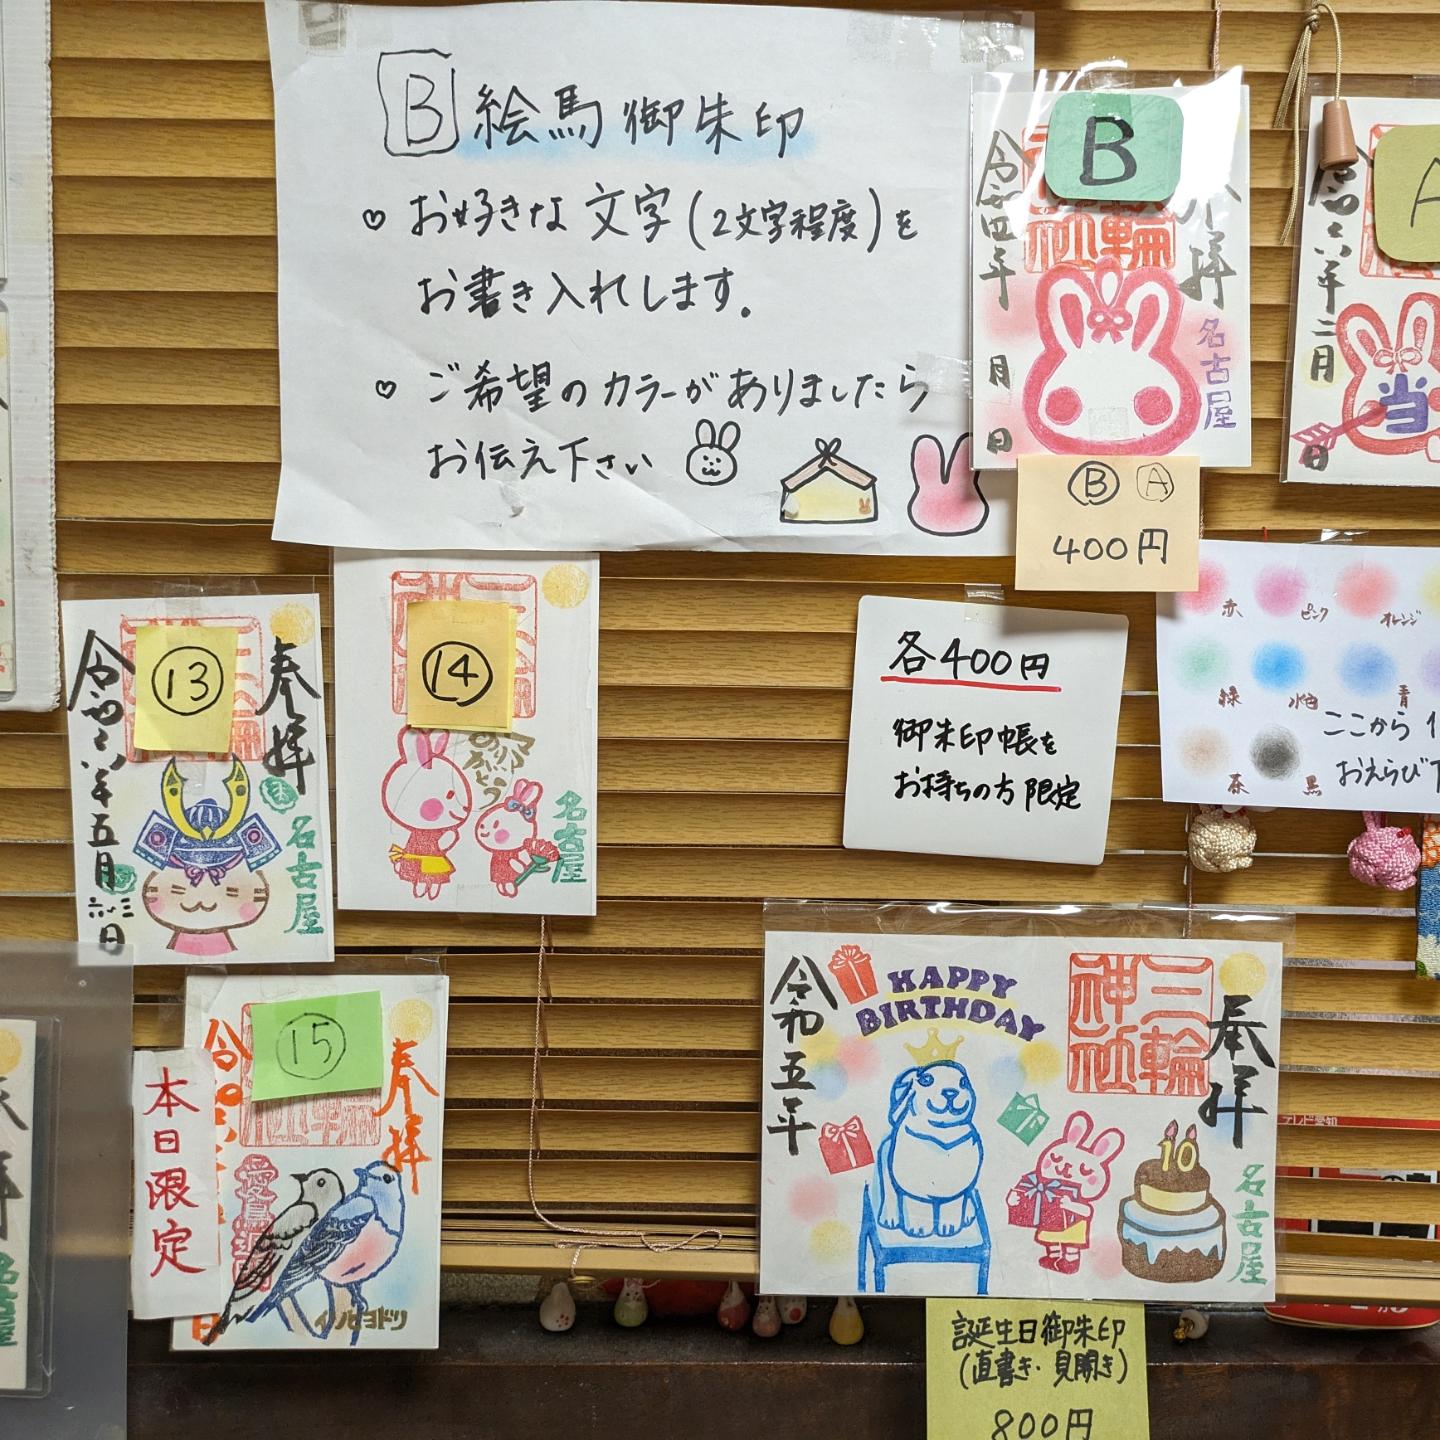 B 絵馬御朱印
♡ お好きな文字(2文字程度)を
お書き入れします。
♡ ご希望のカラーがありましたら
お伝え下さい
B
奉拝
三輪神社
令和四年 月 日
名古屋
Ⓑ Ⓐ
400円
A
令和六年二月
日
当
赤 ピンク オレンジ
緑 水色 青
茶 黒
ここから
おえらび下
各400円
御朱印帳を
お持ちの方限定
⑬
奉拝
令和六年五月
日
名古屋
⑭
ママ
ありがとう
名古屋
⑮
奉拝
本日限定
イソヒヨドリ
HAPPY
BIRTHDAY
奉拝
三輪神社
令和五年
10
名古屋
誕生日御朱印
(直書き・見開き)
800円
テレビ愛知